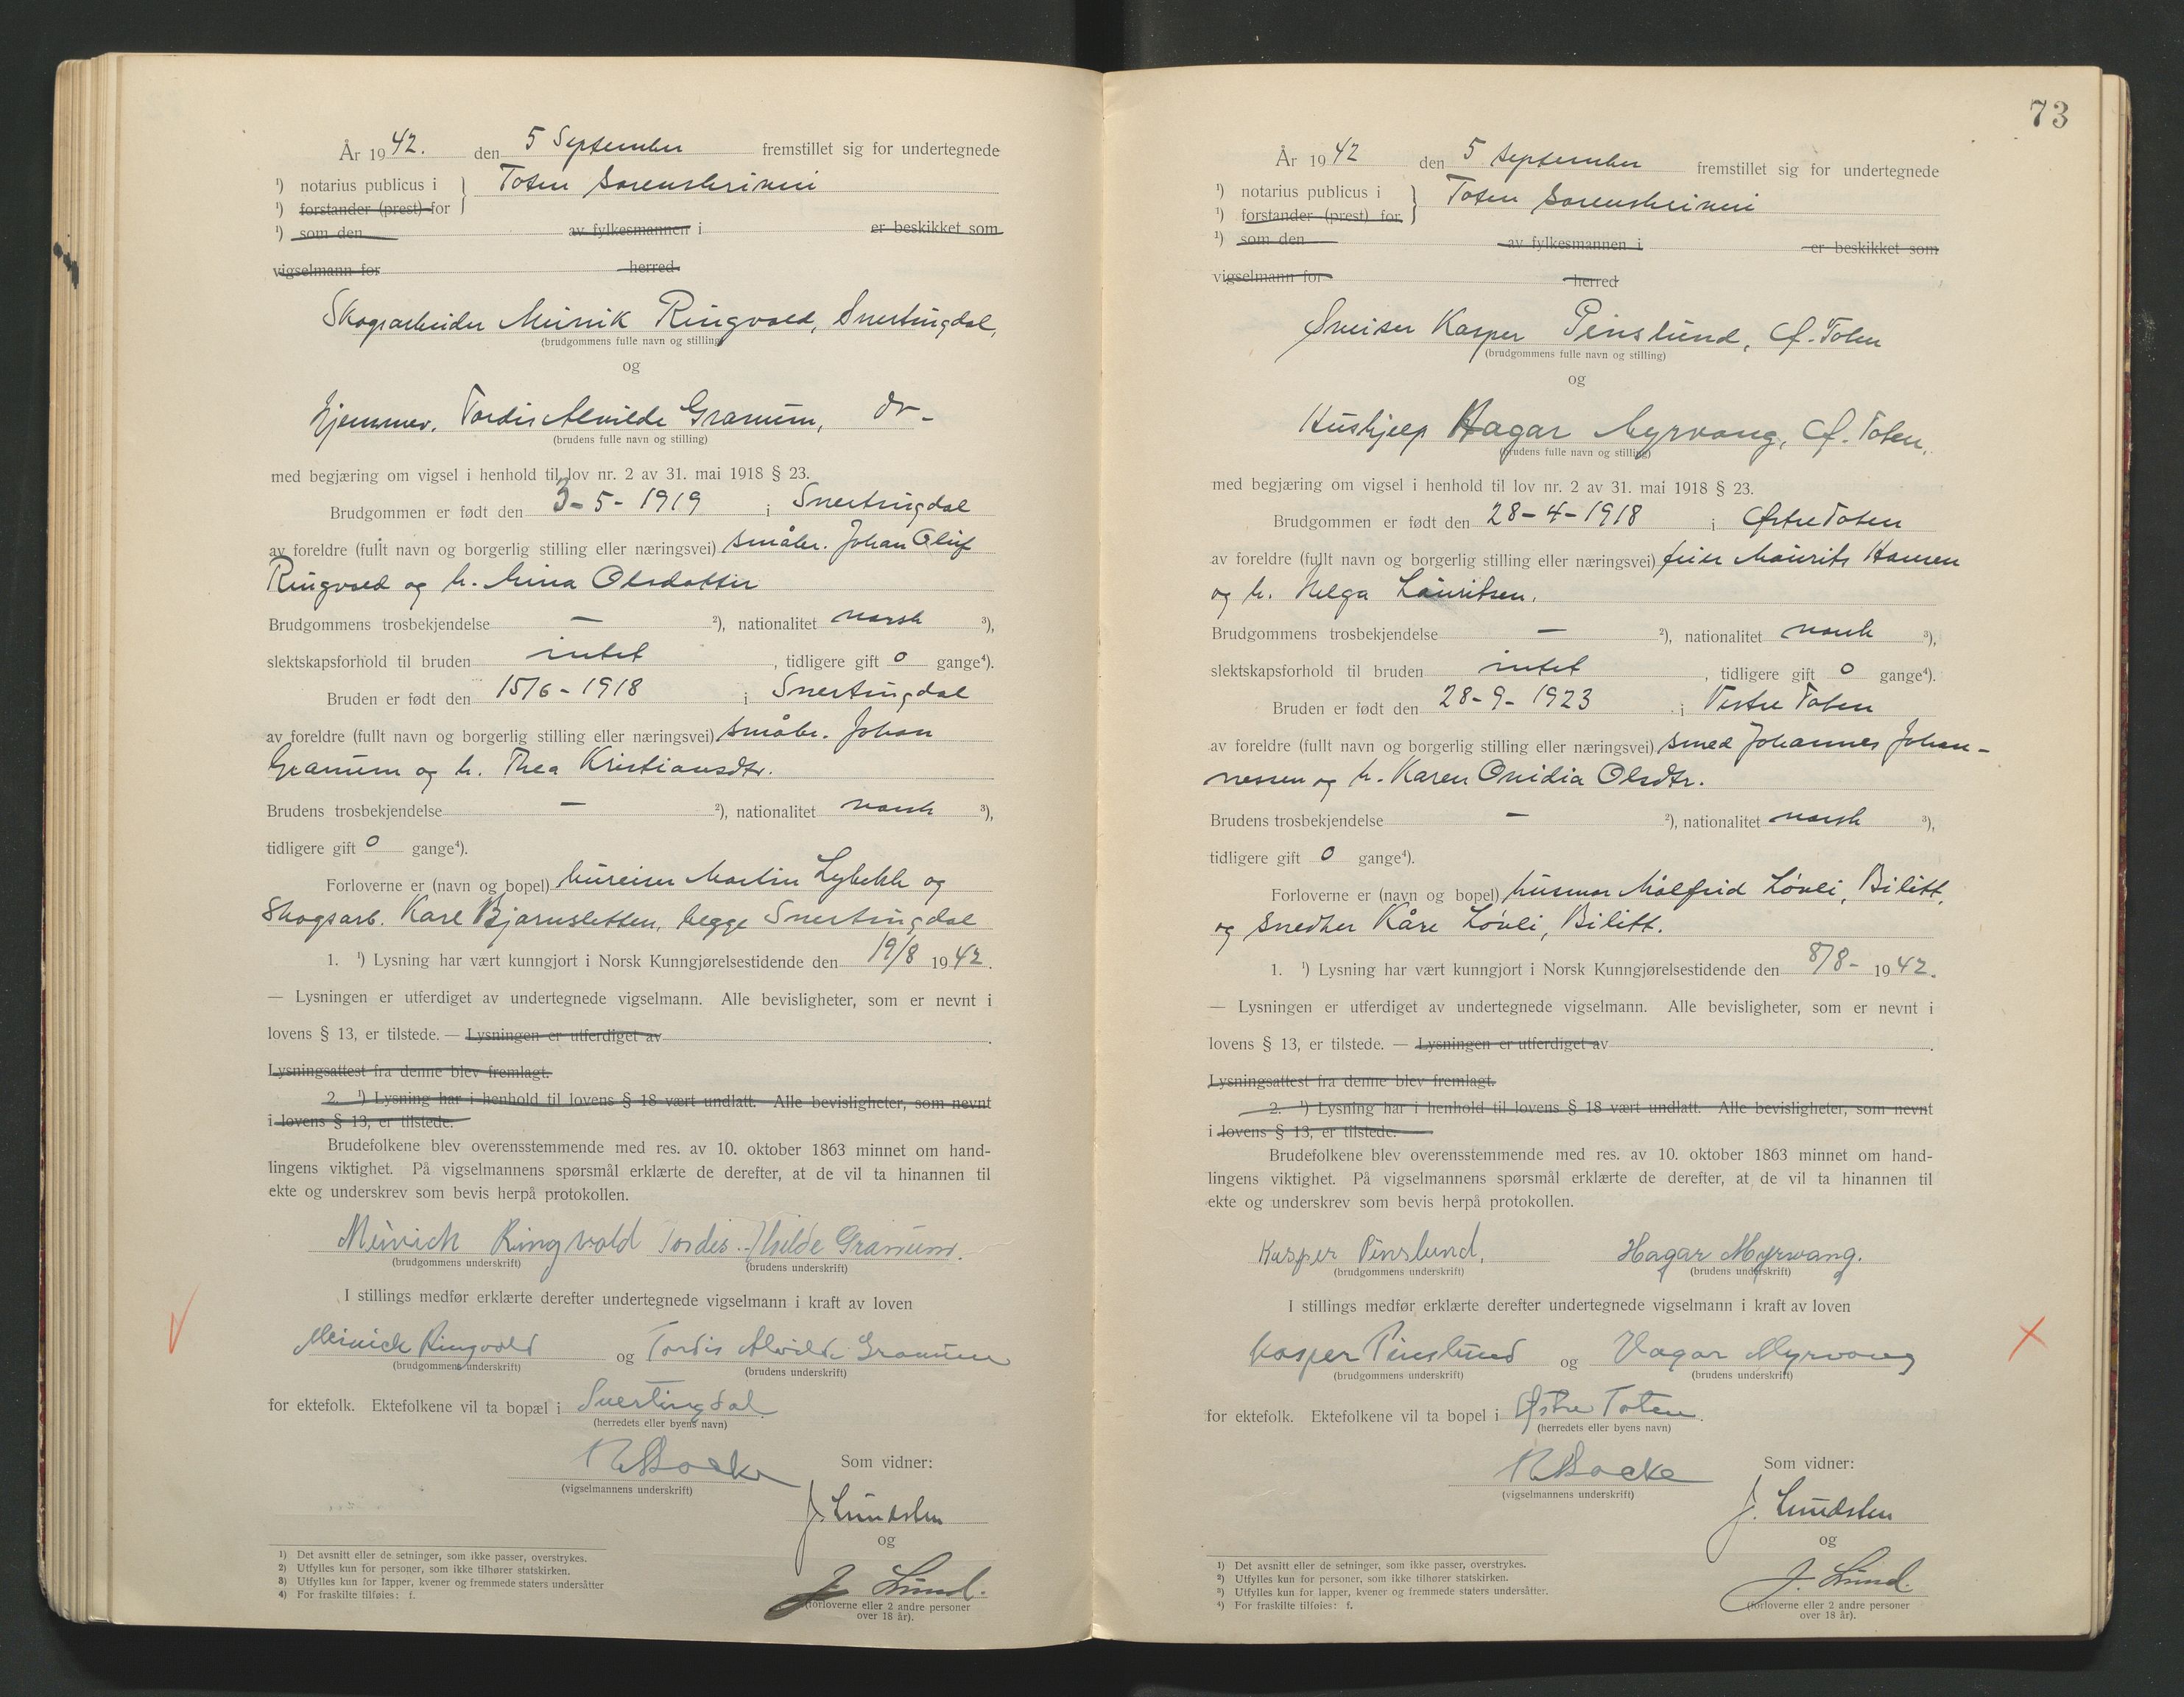 År 1942. den 5 September fremstillet sig for undertegnede
¹) notarius publicus i } Toten Sorenskriveri
¹) forstander (prest) for
¹) som den av fylkesmannen i er beskikket som
vigselmann for herred
Skogsarbeider Meinik Ringvold, Snertingdal,
(brudgommens fulle navn og stilling)
og
Hjemmev. Tordis Alvilde Granum, do -
(brudens fulle navn og stilling)
med begjæring om vigsel i henhold til lov nr. 2 av 31. mai 1918 § 23.
Brudgommen er født den 3-5-1919 i Snertingdal
av foreldre (fullt navn og borgerlig stilling eller næringsvei) småbr. Johan Oluf
Ringvold og h. Mina Olsdatter
Brudgommens trosbekjendelse — ²), nationalitet norsk ³),
slektskapsforhold til bruden intet, tidligere gift 0 gange⁴).
Bruden er født den 15/6-1918 i Snertingdal
av foreldre (fullt navn og borgerlig stilling eller næringsvei) småbr. Johan
Granum og h. Thea Kristiansdtr.
Brudens trosbekjendelse — ²), nationalitet norsk ³),
tidligere gift 0 gange⁴).
Forloverne er (navn og bopel) Martin Lybekk og
Skogsarb. Karl Bjørnsletten, begge Snertingdal
1. ¹) Lysning har vært kunngjort i Norsk Kunngjørelsestidende den 19/8 1942.
— Lysningen er utferdiget av undertegnede vigselmann. Alle bevisligheter, som er nevnt i
lovens § 13, er tilstede. — Lysningen er utferdiget av
Lysningsattest fra denne blev fremlagt.
2. ¹) Lysning har i henhold til lovens § 18 vært undlatt. Alle bevisligheter, som nevnt
i lovens § 13, er tilstede.
Brudefolkene blev overensstemmende med res. av 10. oktober 1863 minnet om hand-
lingens viktighet. På vigselmannens spørsmål erklærte de derefter, at de vil ta hinannen til
ekte og underskrev som bevis herpå protokollen.
Meinich Ringvold Tordis Alvilde Granum.
(brudgommens underskrift) (brudens underskrift)
I stillings medfør erklærte derefter undertegnede vigselmann i kraft av loven
Meinich Ringvold og Tordis Alvilde Granum
(brudgommens underskrift) (brudens underskrift)
for ektefolk. Ektefolkene vil ta bopæl i Snertingdal
(herredets eller byens navn)
(vigselmannens underskrift)
Som vidner:
J. Lundsten
og
J. Lund.
(forloverne eller 2 andre personer
over 18 år).
1) Det avsnitt eller de setninger, som ikke passer, overstrykes.
2) Utfylles kun for personer, som ikke tilhører statskirken.
3) Utfylles kun for lapper, kvener og fremmede staters undersåtter
4) For fraskilte tilføies: f.
73
År 1942 den 5 September fremstillet sig for undertegnede
¹) notarius publicus i } Toten Sorenskriveri
¹) forstander (prest) for
¹) som den av fylkesmannen i er beskikket som
vigselmann for herred
Sveiser Kasper Pinslund, Ø. Toten
(brudgommens fulle navn og stilling)
og
Hushjelp Hagar Myrvang, Ø. Toten.
(brudens fulle navn og stilling)
med begjæring om vigsel i henhold til lov nr. 2 av 31. mai 1918 § 23.
Brudgommen er født den 28-4-1918 i Østre Toten
av foreldre (fullt navn og borgerlig stilling eller næringsvei) feier Mauritz Hansen
og h. Helga Lauritsen.
Brudgommens trosbekjendelse — ²), nationalitet norsk ³),
slektskapsforhold til bruden intet, tidligere gift 0 gange⁴).
Bruden er født den 28-9-1923 i Vestre Toten
av foreldre (fullt navn og borgerlig stilling eller næringsvei) smed Johannes Johan-
nessen og h. Karen Ovidia Olsdtr.
Brudens trosbekjendelse — ²), nationalitet norsk ³),
tidligere gift 0 gange⁴).
Forloverne er (navn og bopel) husmor Målfrid Løvli, Bilitt,
og snedker Kåre Løvli, Bilitt.
1. ¹) Lysning har vært kunngjort i Norsk Kunngjørelsestidende den 8/8- 1942.
— Lysningen er utferdiget av undertegnede vigselmann. Alle bevisligheter, som er nevnt i
lovens § 13, er tilstede. — Lysningen er utferdiget av
Lysningsattest fra denne blev fremlagt.
2. ¹) Lysning har i henhold til lovens § 18 vært undlatt. Alle bevisligheter, som nevnt
i lovens § 13, er tilstede.
Brudefolkene blev overensstemmende med res. av 10. oktober 1863 minnet om hand-
lingens viktighet. På vigselmannens spørsmål erklærte de derefter, at de vil ta hinannen til
ekte og underskrev som bevis herpå protokollen.
Kasper Pinslund. Hagar Myrvang.
(brudgommens underskrift) (brudens underskrift)
I stillings medfør erklærte derefter undertegnede vigselmann i kraft av loven
Kasper Pinslund og Hagar Myrvang
(brudgommens underskrift) (brudens underskrift)
for ektefolk. Ektefolkene vil ta bopel i Østre Toten.
(herredets eller byens navn)
(vigselmannens underskrift)
Som vidner:
J. Lundsten
og
J. Lund.
(forloverne eller 2 andre personer
over 18 år).
¹) Det avsnitt eller de setninger, som ikke passer, overstrykes.
²) Utfylles kun for personer, som ikke tilhører statskirken.
³) Utfylles kun for lapper, kvener og fremmede staters undersåtter.
⁴) For fraskilte tilføies: f.